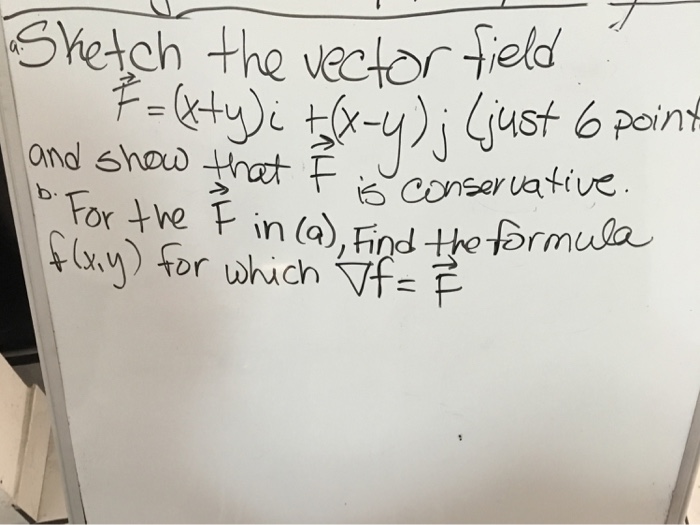 a. Sketch the vector field
F⃗ = (x+y)i + (x-y)j (just 6 point
and show that F⃗ is conservative.
b. For the F⃗ in (a), Find the formula
f(x,y) for which ∇f = F⃗